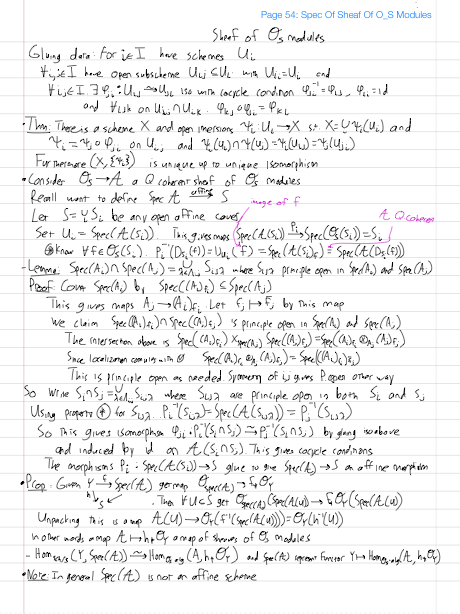 Page 54: Spec Of Sheaf Of O_S Modules
Sheaf of 𝒪_S modules
Gluing data: for i∈I have schemes U_i
∀i,j∈I have open subscheme U_ij ⊆ U_i with U_ii=U_i and
∀i,j∈I ∃φ_ji: U_ij ⥲ U_ji iso with cocycle condition φ_ji^-1=φ_ij, φ_ii=id
and ∀i,j,k on U_ij∩U_ik φ_kj∘φ_ji=φ_ki
•Thm: There is a scheme X and open imersions ψ_i: U_i→X s.t. X=∪ψ_i(U_i) and
ψ_i=ψ_j∘φ_ji on U_ij and ψ_i(U_i)∩ψ_j(U_j)=ψ_i(U_ij)=ψ_j(U_ji)
Furthermore (X,{ψ_i}) is unique up to unique Isomorphism
•Consider 𝒪_S→𝒜 a Q coherent sheaf of 𝒪_S modules
Recall want to define Spec 𝒜 affine→ S
image of f
𝒜 Q coherent
Let S=∪S_i be any open affine cover
Set U_i=Spec(𝒜(S_i)). This gives maps Spec(𝒜(S_i)) P_i→ Spec(𝒪_S(S_i))=S_i
⊛ Know ∀f∈𝒪_S(S_i). P_i^-1(D_{S_i}(f))=D_{U_i}(f)=Spec(𝒜(S_i)_f)=Spec(𝒜(D_{S_i}(f)))
-Lemma: Spec(A_i)∩Spec(A_j)=∪S_ijλ where S_ijλ principle open in Spec(A_i) and Spec(A_j)
Proof: Cover Spec(A_i) by Spec((A_i)_{F_i}) ⊆ Spec(A_j)
This gives maps A_j→(A_i)_{F_i}. Let f_j↦F_j by this map
We claim Spec((A_i)_{F_i})∩Spec((A_j)_{F_j}) is principle open in Spec(A_i) and Spec(A_j)
The intersection above is Spec((A_i)_{F_i}) ×_{Spec(A_j)} Spec((A_j)_{F_j})=Spec((A_i)_{F_i}⊗_{A_j}(A_j)_{F_j})
Since localization commutes with ⊗ Spec((A_i)_{F_i}⊗_{A_j}(A_j)_{F_j})=Spec(((A_i)_{F_i})_{F_j})
This is principle open as needed Symmetry of i,j gives P.open other way
So write S_i∩S_j=∪S_ijλ where S_ijλ are principle open in both S_i and S_j
Using property ⊛ for S_ijλ. P_i^-1(S_ijλ)=Spec(𝒜(S_ijλ))=P_j^-1(S_ijλ)
So this gives isomorphism φ_ji: P_i^-1(S_i∩S_j)⥲P_j^-1(S_i∩S_j) by gluing iso above
and induced by id on 𝒜(S_i∩S_j). This gives cocycle conditions
The morphisms P_i: Spec(𝒜(S_i))→S glue to give Spec(𝒜)→S an affine morphism
•Prop: Given Y f→ Spec(𝒜) get map 𝒪_Spec(𝒜)→f_*𝒪_Y
h↘ S ↙ . Then ∀U⊂S get 𝒪_Spec(𝒜)(Spec(𝒜(U)))→f_*𝒪_Y(Spec(𝒜(U)))
Unpacking this is a map 𝒜(U)→𝒪_Y(f^-1(Spec(𝒜(U))))=𝒪_Y(h^-1(U))
In other words a map 𝒜→h_*𝒪_Y a map of sheaves of 𝒪_S modules
-Hom_sch/S(Y,Spec(𝒜))⥲Hom_{𝒪_S-alg}(𝒜,h_*𝒪_Y) and Spec(𝒜) represent functor Y↦Hom_{𝒪_S-alg}(𝒜,h_*𝒪_Y)
•Note: In general Spec(𝒜) is not an affine scheme